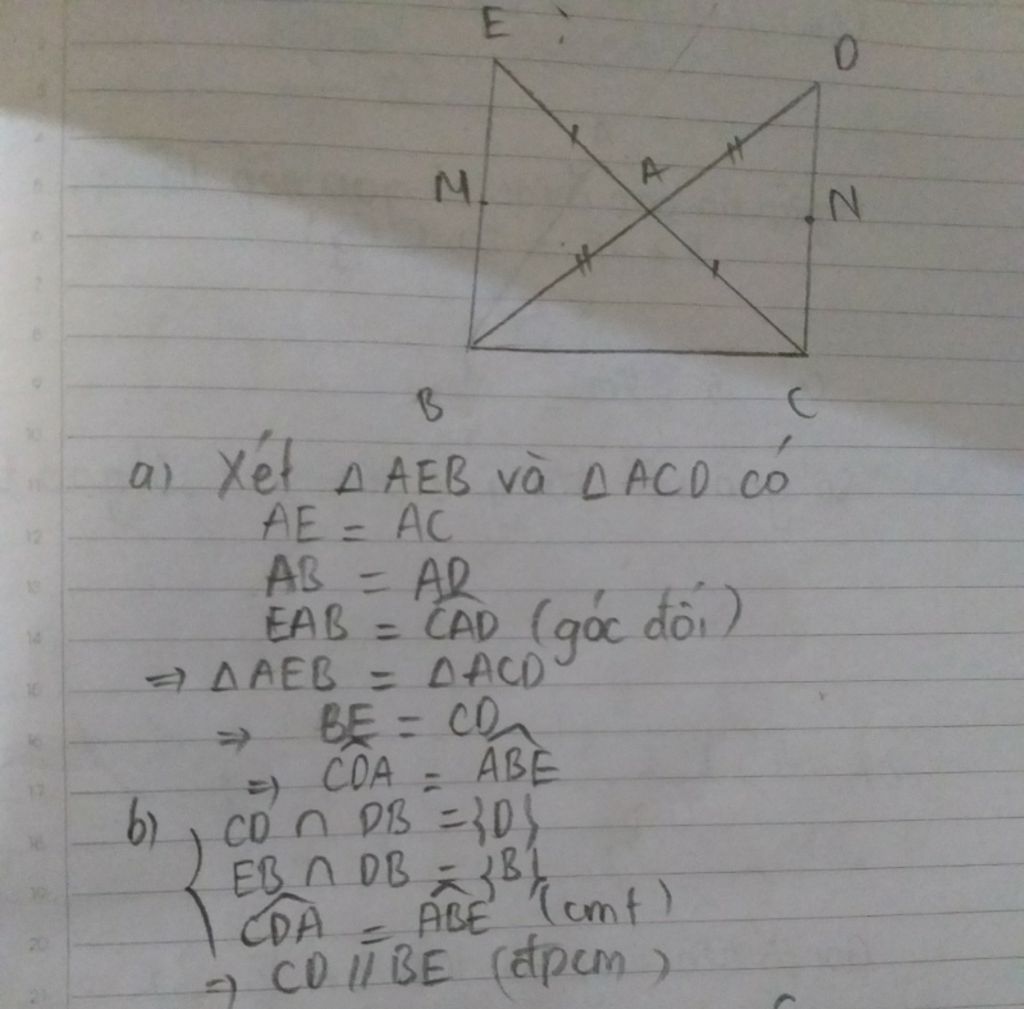 E :
D
A
M
N
B
C
a) Xét Δ AEB và Δ ACD có
AE = AC
AB = AD
EAB = \widehat{CAD} (góc đối)
⇒ Δ AEB = Δ ACD
⇒ BE = CD
⇒ \widehat{CDA} = \widehat{ABE}
b) { CD ∩ DB = {D}
EB ∩ DB = {B}
\widehat{CDA} = \widehat{ABE} (cmt)
⇒ CD // BE (đpcm)